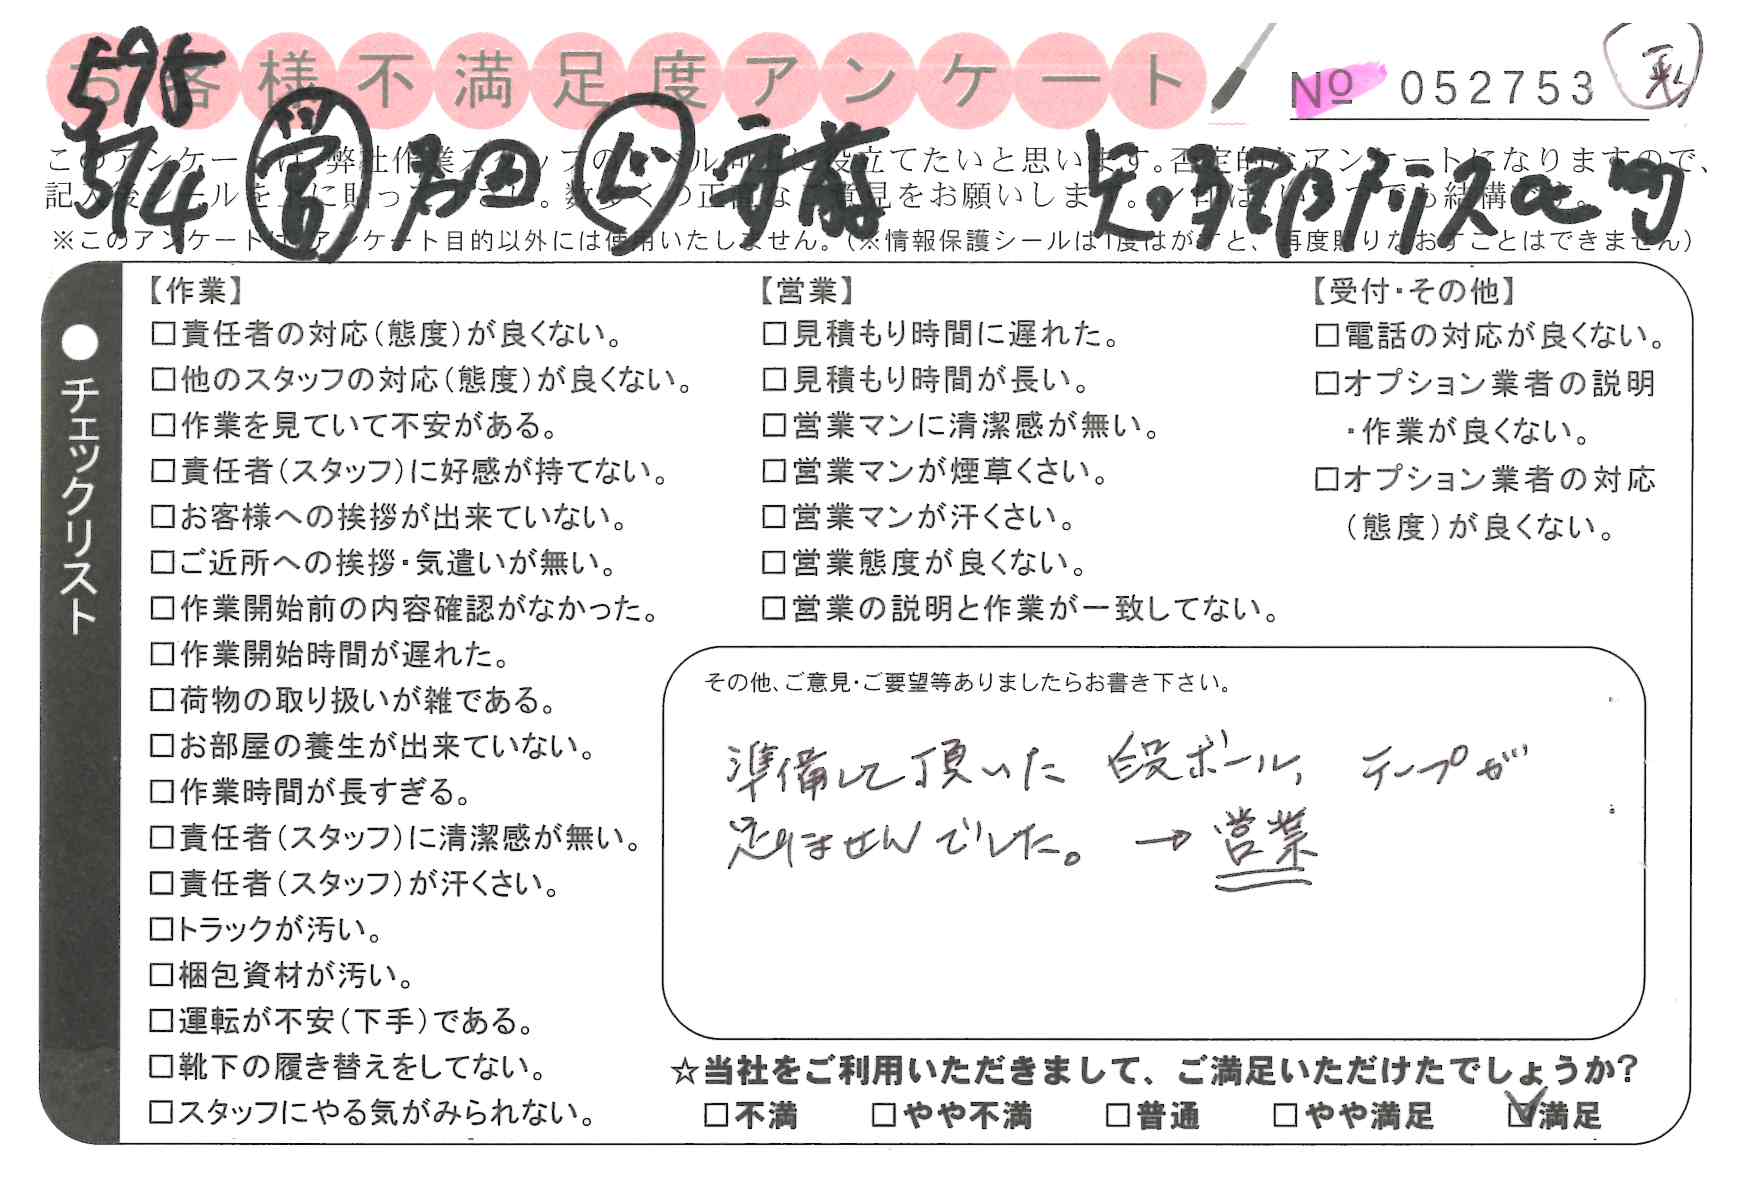 お客様不満足度アンケート
№ 052753
595
5/4 営 戸田
このアンケートは、弊社作業スタッフのレベル向上に役立てたいと思います。否定的なアンケートになりますので、
記入後シールを上に貼って下さい。数多くの正直なご意見をお願いします。
※このアンケートはアンケート目的以外には使用いたしません。(※情報保護シールは1度はがすと、再度貼りなおすことはできません)
●チェックリスト
【作業】
□責任者の対応(態度)が良くない。
□他のスタッフの対応(態度)が良くない。
□作業を見ていて不安がある。
□責任者(スタッフ)に好感が持てない。
□お客様への挨拶が出来ていない。
□ご近所への挨拶・気遣いが無い。
□作業開始前の内容確認がなかった。
□作業開始時間が遅れた。
□荷物の取り扱いが雑である。
□お部屋の養生が出来ていない。
□作業時間が長すぎる。
□責任者(スタッフ)に清潔感が無い。
□責任者(スタッフ)が汗くさい。
□トラックが汚い。
□梱包資材が汚い。
□運転が不安(下手)である。
□靴下の履き替えをしてない。
□スタッフにやる気がみられない。
【営業】
□見積もり時間に遅れた。
□見積もり時間が長い。
□営業マンに清潔感が無い。
□営業マンが煙草くさい。
□営業マンが汗くさい。
□営業態度が良くない。
□営業の説明と作業が一致してない。
【受付・その他】
□電話の対応が良くない。
□オプション業者の説明
・作業が良くない。
□オプション業者の対応
(態度)が良くない。
その他、ご意見・ご要望等ありましたらお書き下さい。
準備して頂いた 段ボール, テープが
足りませんでした。 → 営業
☆当社をご利用いただきまして、ご満足いただけたでしょうか?
□不満 □やや不満 □普通 □やや満足 ☑満足